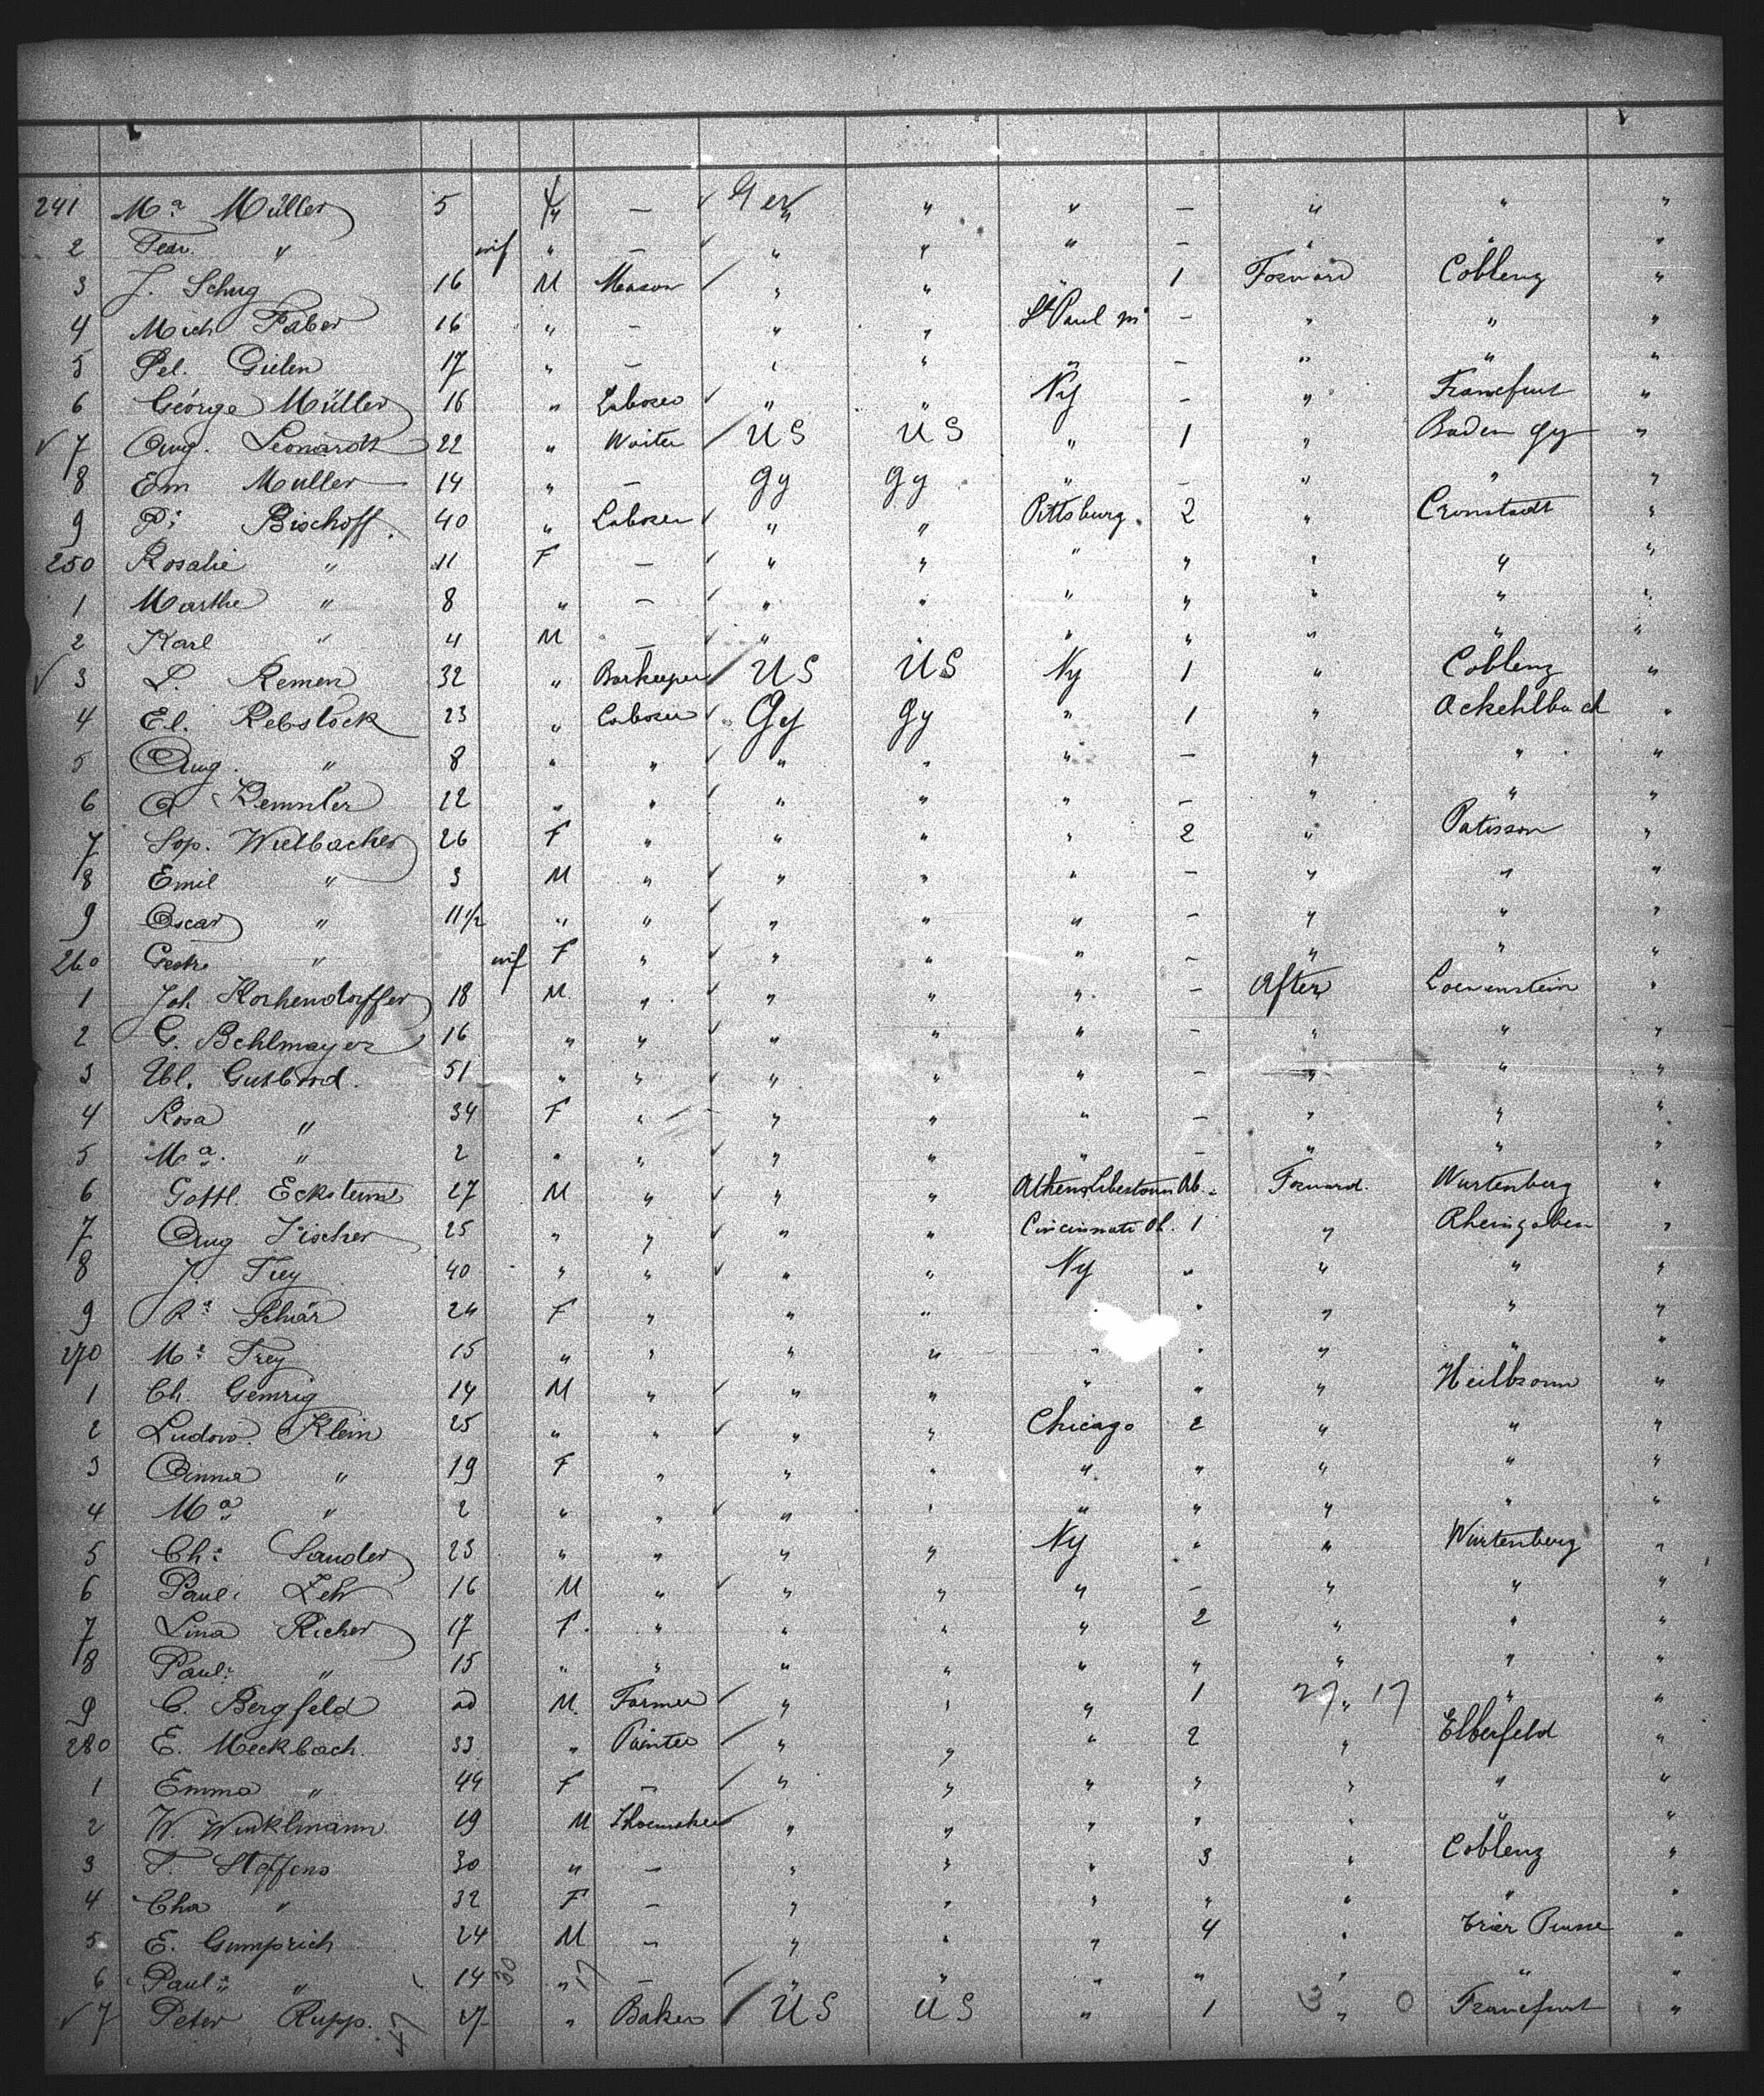 241 Mª Müller 5 " — Ger " " — " " "
2 Fear. " inf " — " " " — " " "
3 J. Schug 16 M Mason " " " 1 Forward Coblenz "
4 Mich Faber 16 " — " " St Paul m — " " "
5 Pel. Gielen 17 " — " " " — " " "
6 George Müller 16 " Laborer " " Ny — " Francfurt "
7 Aug. Leonardt 22 " Waiter US US " 1 " Baden Gy "
8 Em Muller 14 " — Gy Gy " — " " "
9 P: Bischoff. 40 " Laborer " " Pittsburg. 2 " Cronstadt "
250 Rosalie " 11 F — " " " " " " "
1 Marthe " 8 " — " " " " " " "
2 Karl " 4 M — " " " " " " "
3 L. Remen 32 " Barkeeper US US Ny 1 " Coblenz "
4 El. Rebstock 23 " Laborer Gy Gy " 1 " Ackehlbach "
5 Aug. " 8 " " " " " — " " "
6 A Kemnler 22 " " " " " — " " "
7 Sop. Wielbacher 26 F " " " " 2 " Patisson "
8 Emil " 3 M " " " " — " " "
9 Oscar " 11 1/2 " " " " " — " " "
260 " inf F " " " " — " " "
1 Joh Korhendorffer 18 M. " " " " — After Loewenstein "
2 G. Behlmayer 16 " " " " " — " " "
3 Ubl. Gutbrod. 51 " " " " " — " " "
4 Rosa " 34 F " " " " — " " "
5 Mª. " 2 " " " " " — " " "
6 Gottl. Eckstein 27 M " " " Forward. Wurtenberg "
7 Aug Fischer 25 " " " " Cincinnati Oh. 1 " Rheingaben "
8 J. Frey 40 " " " " Ny " " " "
9 Rª Schär 24 F " " " " " " "
270 Mª Frey 15 " " " " " " " " "
1 Ch. Gemrig 14 M " " " " " " Heilbronn "
2 Ludow. Klein 25 " " " " Chicago 2 " " "
3 Anna " 19 F " " " " " " " "
4 Mª " 2 " " " " " " " " "
5 Ch: Sauder 23 " " " " Ny " " Wurtenberg "
6 Paul: Zeh 16 M " " " " — " " "
7 Lina Richer 17 F. " " " " 2 " " "
8 Paul: " 15 " " " " " " " " "
9 C. Bergfeld 20 M. Farmer " " " 1 27 " 17 " "
280 E. Meckbach. 33 " Painter " " " 2 " Elberfeld "
1 Emma " 44 F — " " " " " " "
2 W. Winklmann 19 M Shoemaker " " " " " " "
3 F. Steffens 30 " — " " " 3 " Coblenz "
4 Cha " 32 F — " " " " " " "
5 E. Gumprich 24 M — " " " 4 " Trier Prusse "
6 Paul: " 14 30 " 17 — " " " " " " "
7 Peter Rupp. 47 27 " Baker US US " 1 3 " 0 Francfurt "